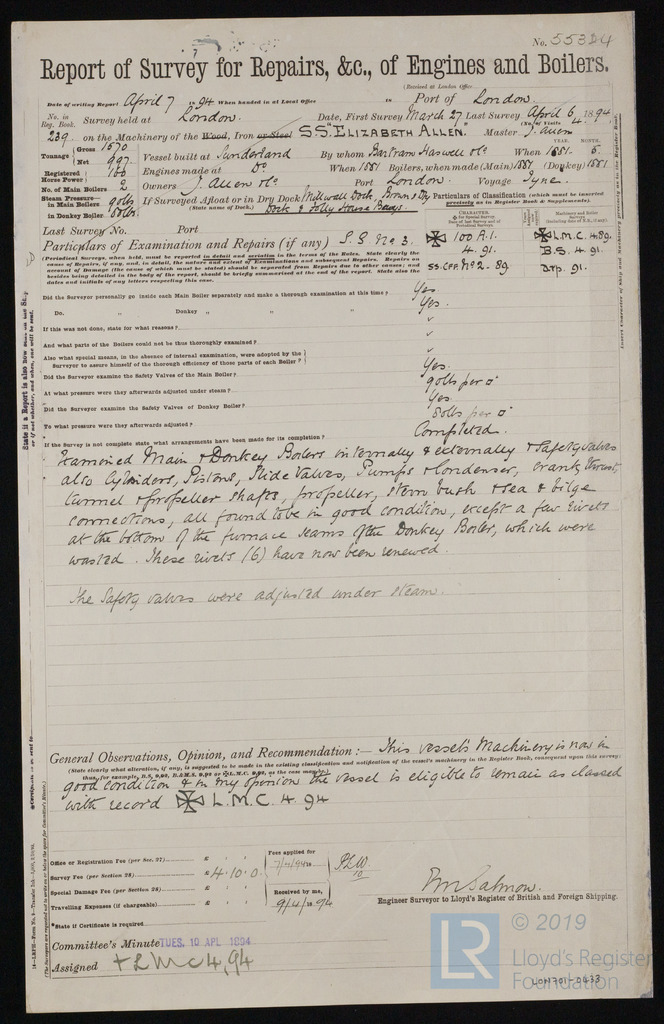 No. 55324
Report of Survey for Repairs, &c., of Engines and Boilers.
(Received at London Office
Date of writing Report April 7 1894 When handed in at Local Office in Port of London.
No. in Reg. Book. Survey held at London. Date, First Survey March 27 Last Survey April 6 1894
(No. of Visits 4)
239 on the Machinery of the Wood, Iron or Steel S.S. "Elizabeth Allen. Master J. Allen
Tonnage Gross 1570 Net 997 Vessel built at Sunderland By whom Bartram Haswell & Co When 1881. 5.
YEAR. MONTH.
Registered Horse Power 160 Engines made at Do When 1881 Boilers, when made (Main) 1881 (Donkey) 1881
No. of Main Boilers 2 Owners J. Allen & Co Port London. Voyage Tyne.
Steam Pressure in Main Boilers 90lbs in Donkey Boiler 50lbs. If Surveyed Afloat or in Dry Dock Millwall Dock, Brown's Dry Dock & Folly House Buoys
(State name of Dock.)
Particulars of Classification (which must be inserted precisely as in Register Book & Supplements).
Last Survey No. Port
Particulars of Examination and Repairs (if any) S.S No 3.
100 A.1. L.M.C. 4.89.
4.91. B.S. 4.91.
SS.CFF.No2-89
(Periodical Surveys, when held, must be reported in detail and seriatim in the terms of the Rules. State clearly the
cause of Repairs, if any, and, in detail, the nature and extent of Examinations and subsequent Repairs. Repairs on
account of Damage (the cause of which must be stated) should be separated from Repairs due to other causes; and
besides being detailed in the body of the report, should be briefly summarised at the end of the report. State also the
dates and initials of any letters respecting this case.
Did the Surveyor personally go inside each Main Boiler separately and make a thorough examination at this time? Yes
Do. " Donkey " " " Yes.
If this was not done, state for what reasons?
And what parts of the Boilers could not be thus thoroughly examined?
Also what special means, in the absence of internal examination, were adopted by the
Surveyor to assure himself of the thorough efficiency of those parts of each Boiler?
Did the Surveyor examine the Safety Valves of the Main Boiler? Yes.
At what pressure were they afterwards adjusted under steam? 90lbs per □"
Did the Surveyor examine the Safety Valves of Donkey Boiler? Yes.
To what pressure were they afterwards adjusted? 50lbs per □"
If the Survey is not complete state what arrangements have been made for its completion? Completed.
Examined Main & Donkey Boilers internally & externally & Safety valves
also Cylinders, Pistons, Slide Valves, Pumps & Condenser, crank, thrust,
tunnel & propeller shafts, propeller, stern bush & sea & bilge
connections, all found to be in good condition, except a few rivets
at the bottom of the furnace seams of the Donkey Boiler, which were
wasted. These rivets (6) have now been renewed.
The Safety valves were adjusted under steam.
General Observations, Opinion, and Recommendation:— This vessel's Machinery is now in
(State clearly what alteration, if any, is suggested to be made in the existing classification and notification of the vessel's machinery in the Register Book, consequent upon this survey;
good condition & in my opinion the vessel is eligible to remain as classed
with record L.M.C. 4.94
Office or Registration Fee (per Sec. 27) £
Survey Fee (per Section 28) £ 4.10.0
Special Damage Fee (per Section 28) £
Travelling Expenses (if chargeable) £
Fees applied for
7/4/1894
Received by me,
9/4/1894
*State if Certificate is required
Engineer Surveyor to Lloyd's Register of British and Foreign Shipping.
Committee's Minute TUES. 10 APL 1894
Assigned + LMC 4,94
LR
© 2019
Lloyd's Register
Foundation
LON701-0433